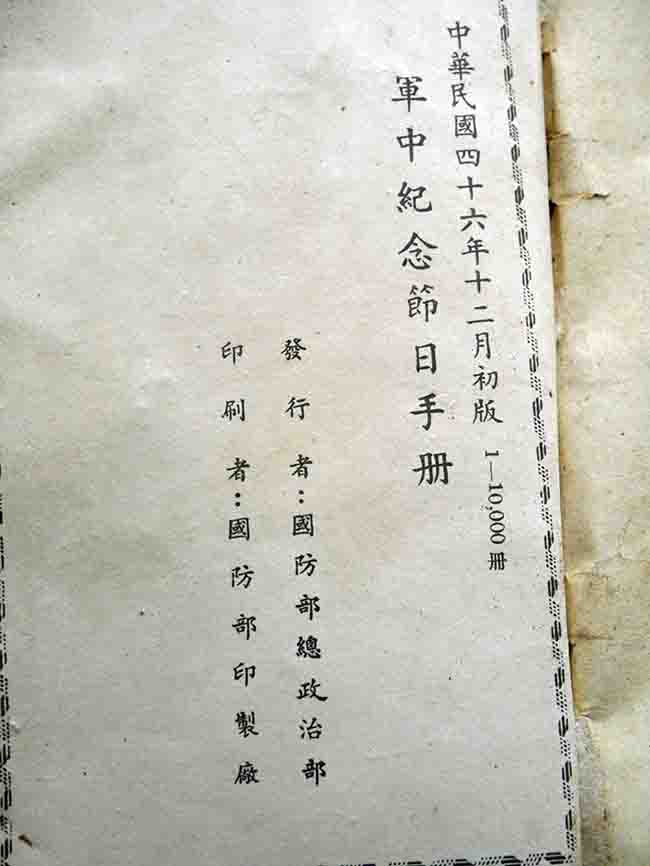 中華民國四十六年十二月初版 1—10,000冊
軍中紀念節日手册
發行者：國防部總政治部
印刷者：國防部印製廠